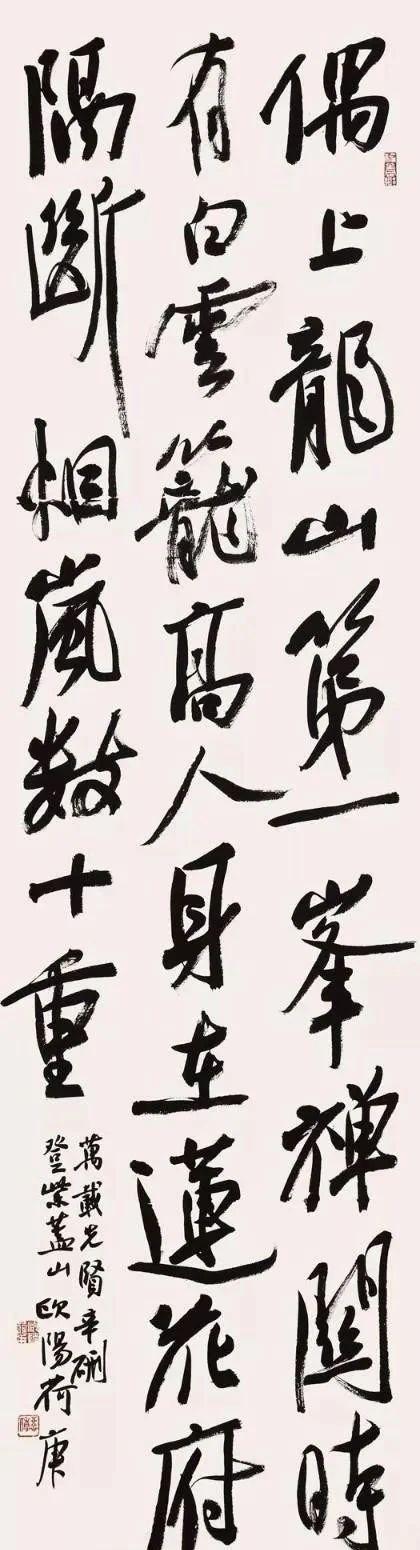 偶上龍山第一峯禪關時
有白雲籠高人身在蓮花府
隔斷烟嵐數十重
萬載先賢辛硎
登紫蓋山歐陽荷庚